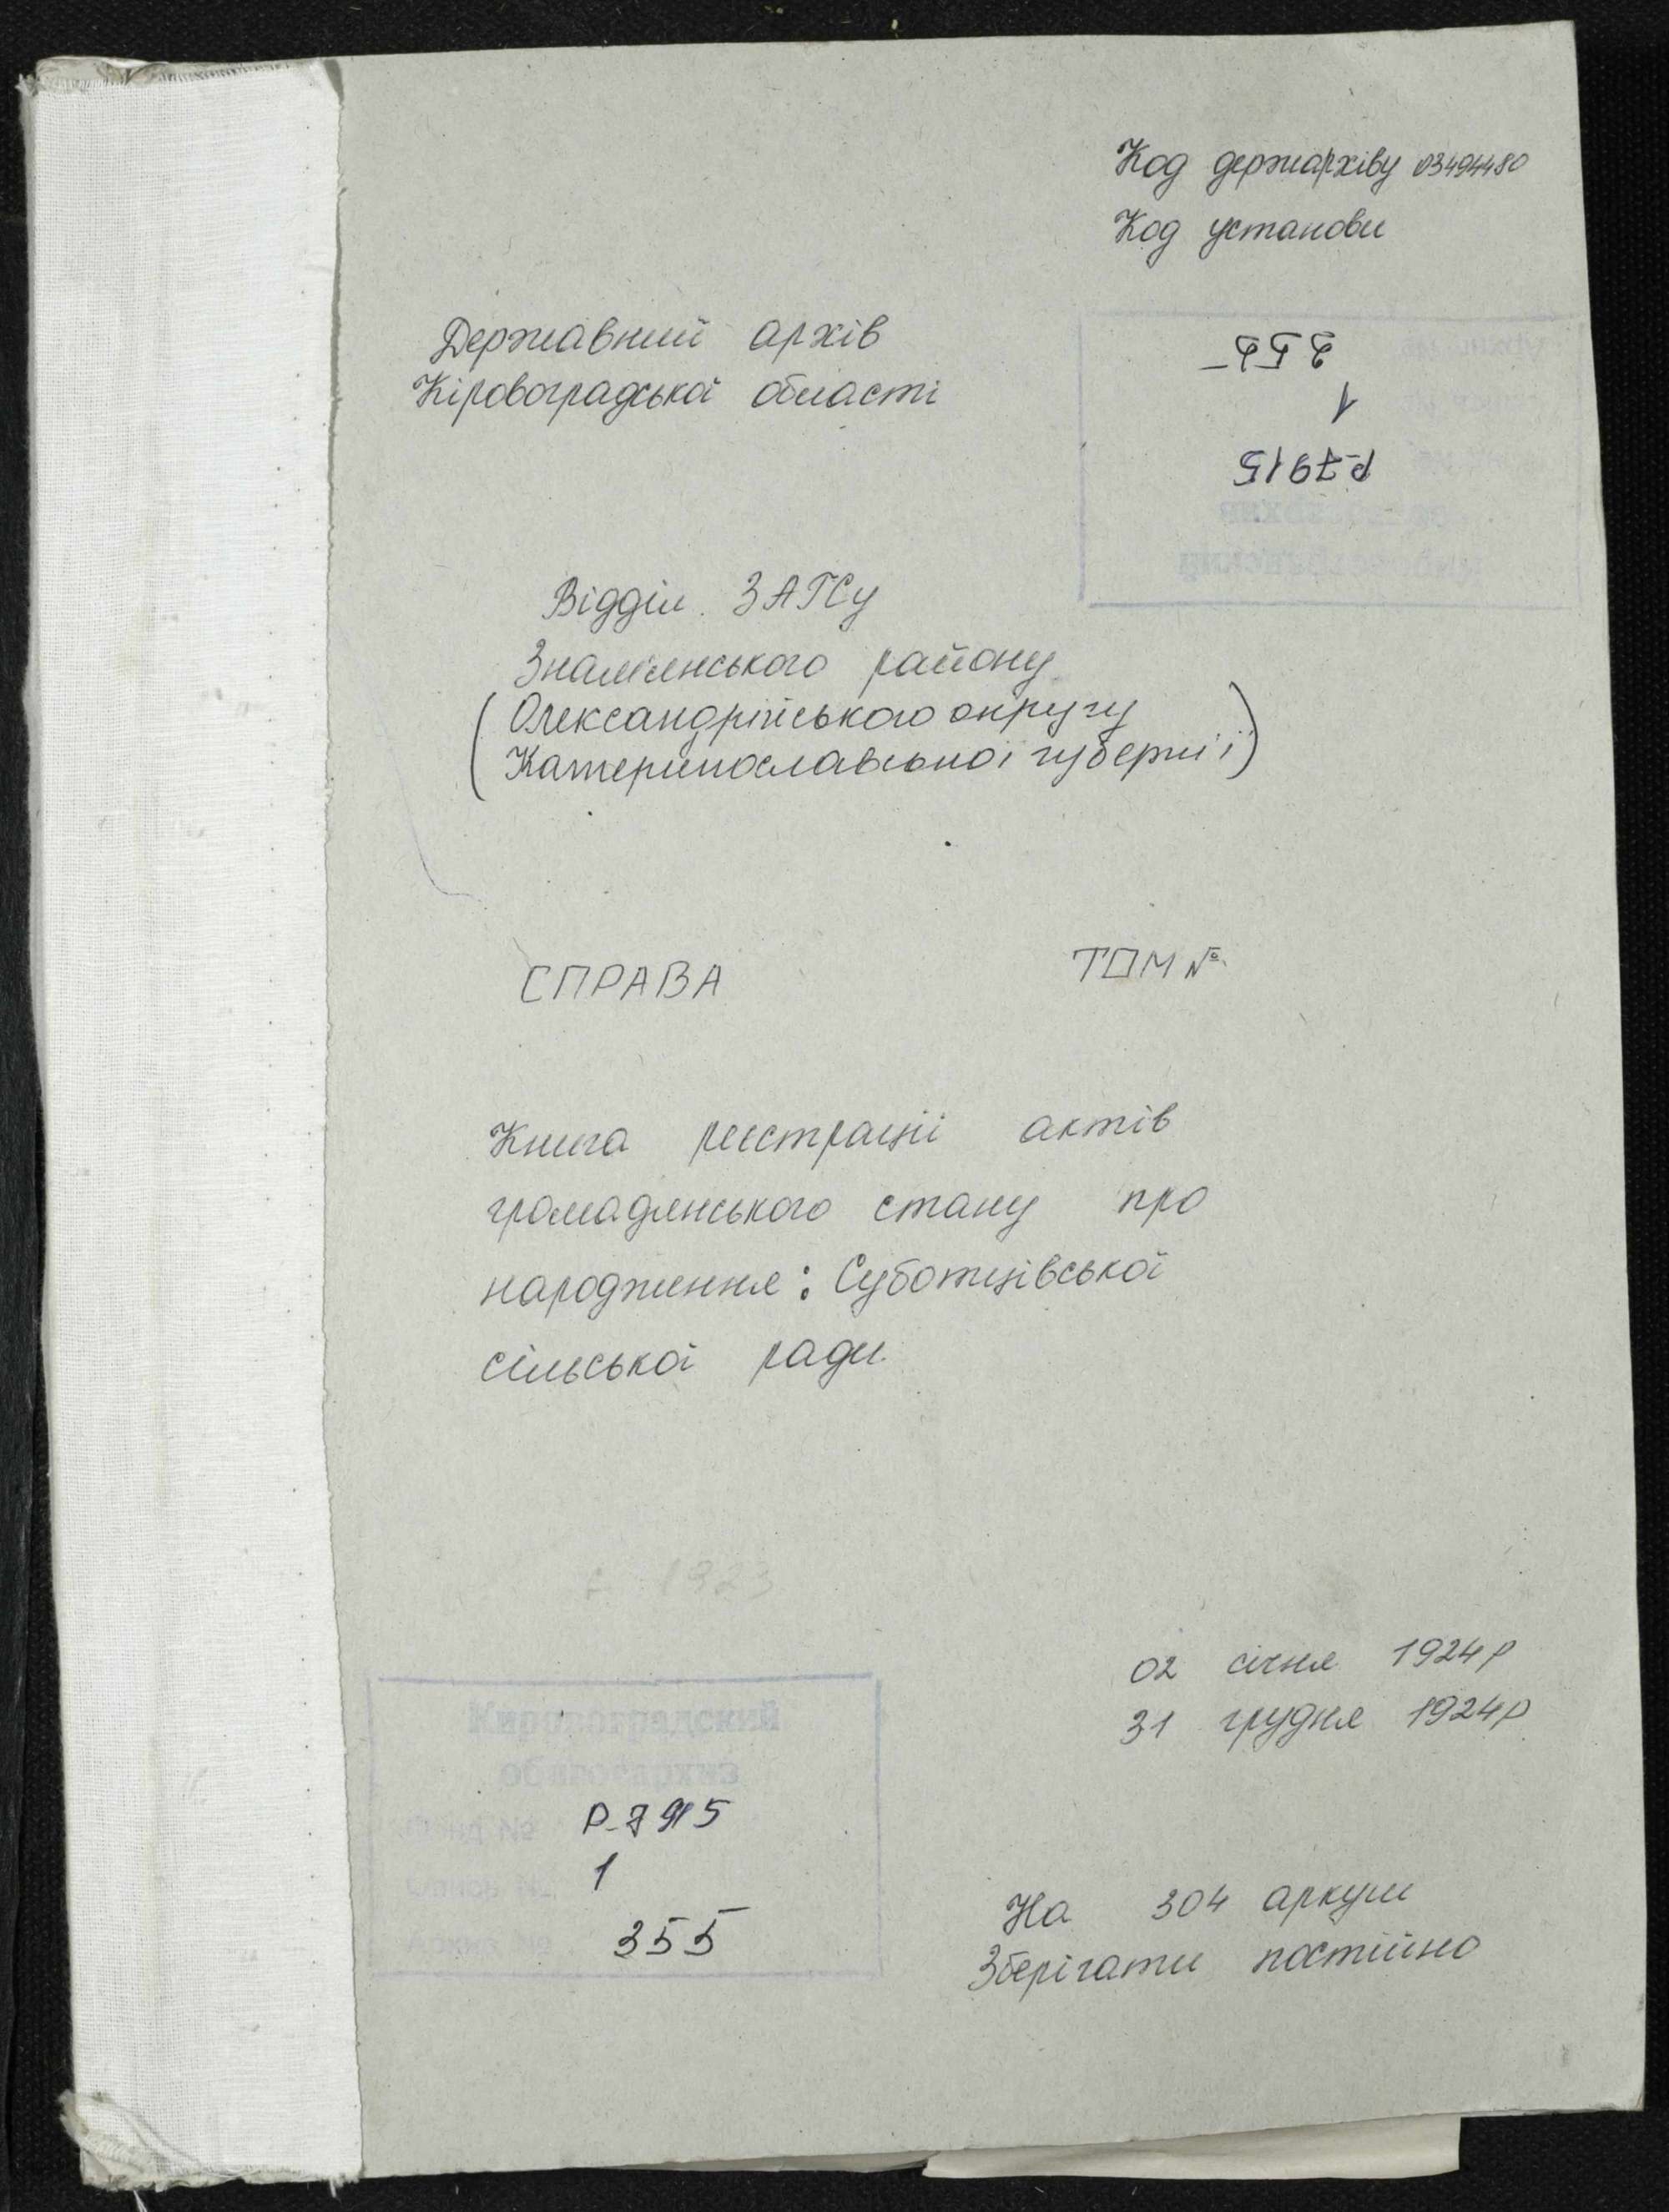 Код держархіву 03494480
Код установи
Державний архів
Кіровоградської області
355
1
Р-7915
Відділ ЗАГСу
Знам'янського району
(Олександрійського округу
Катеринославської губернії)
СПРАВА
ТОМ №
Книга реєстрації актів
громадянського стану про
народження: Суботцівської
сільської ради.
1923
02 січня 1924р
31 грудня 1924р
Кировоградский
облгосархив
Фонд № Р-7915
Опись № 1
Архив № 355
На 304 аркуш
Зберігати постійно